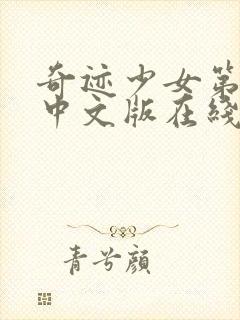 奇迹少女第
中文版在线
青兮颜